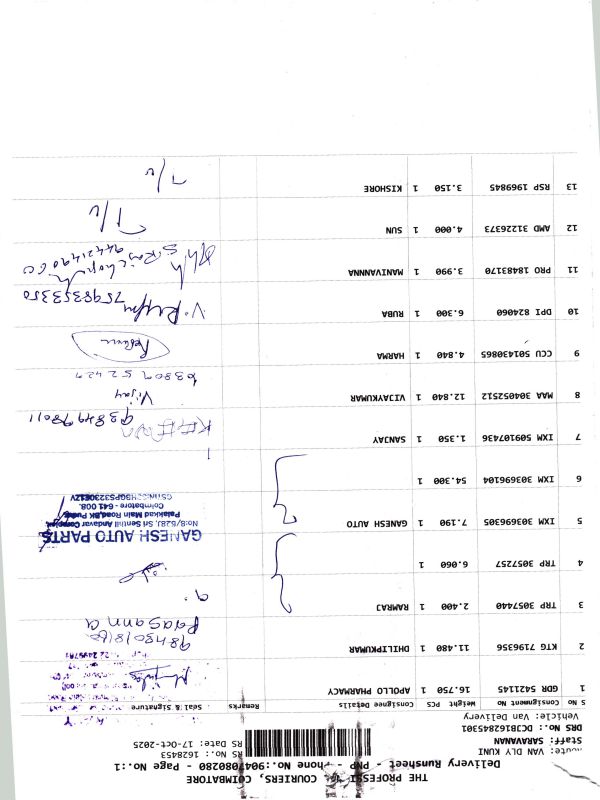 THE PROFESSI COURIERS, COIMBATORE
Delivery Runsheet - PNP - Phone No.:9047080280 - Page No.:1
Route: VAN DLY KUNI
Staff: SARAVANAN
DRS No.: DCJB162845301
Vehicle: Van Delivery
RS No.: 1628453
RS Date: 17-Oct-2025
S No Consignment No Weight PCS Consignee Details Remarks Seal & Signature
1 GDR 54211445 16.750 1 APOLLO PHARMACY
2 KTG 7196356 11.480 1 DHILIPKUMAR
Prasanna
3 TRP 3057440 2.400 1 RAMRAJ
4 TRP 3057257 6.060 1
5 IXM 303696305 7.190 1 GANESH AUTO
GANESH AUTO PARTS
No:8/528J, Sri Senthil Andavar Complex
Palakkad Main Road, BK Pudur
Coimbatore - 641 008.
6 IXM 303696104 54.300 1
7 IXM 509107436 1.350 1 SANJAY
8 MAA 304052512 12.840 1 VIJAYKUMAR
Vijay
9 CCU 501430865 4.840 1 HARMA
10 DPI 824060 6.300 1 RUBA
7598353350
11 PRO 18483170 3.990 1 MANIVANNA
12 AMD 31226373 4.000 1 SUN
T/L
13 RSP 1969845 3.150 1 KISHORE
T/L